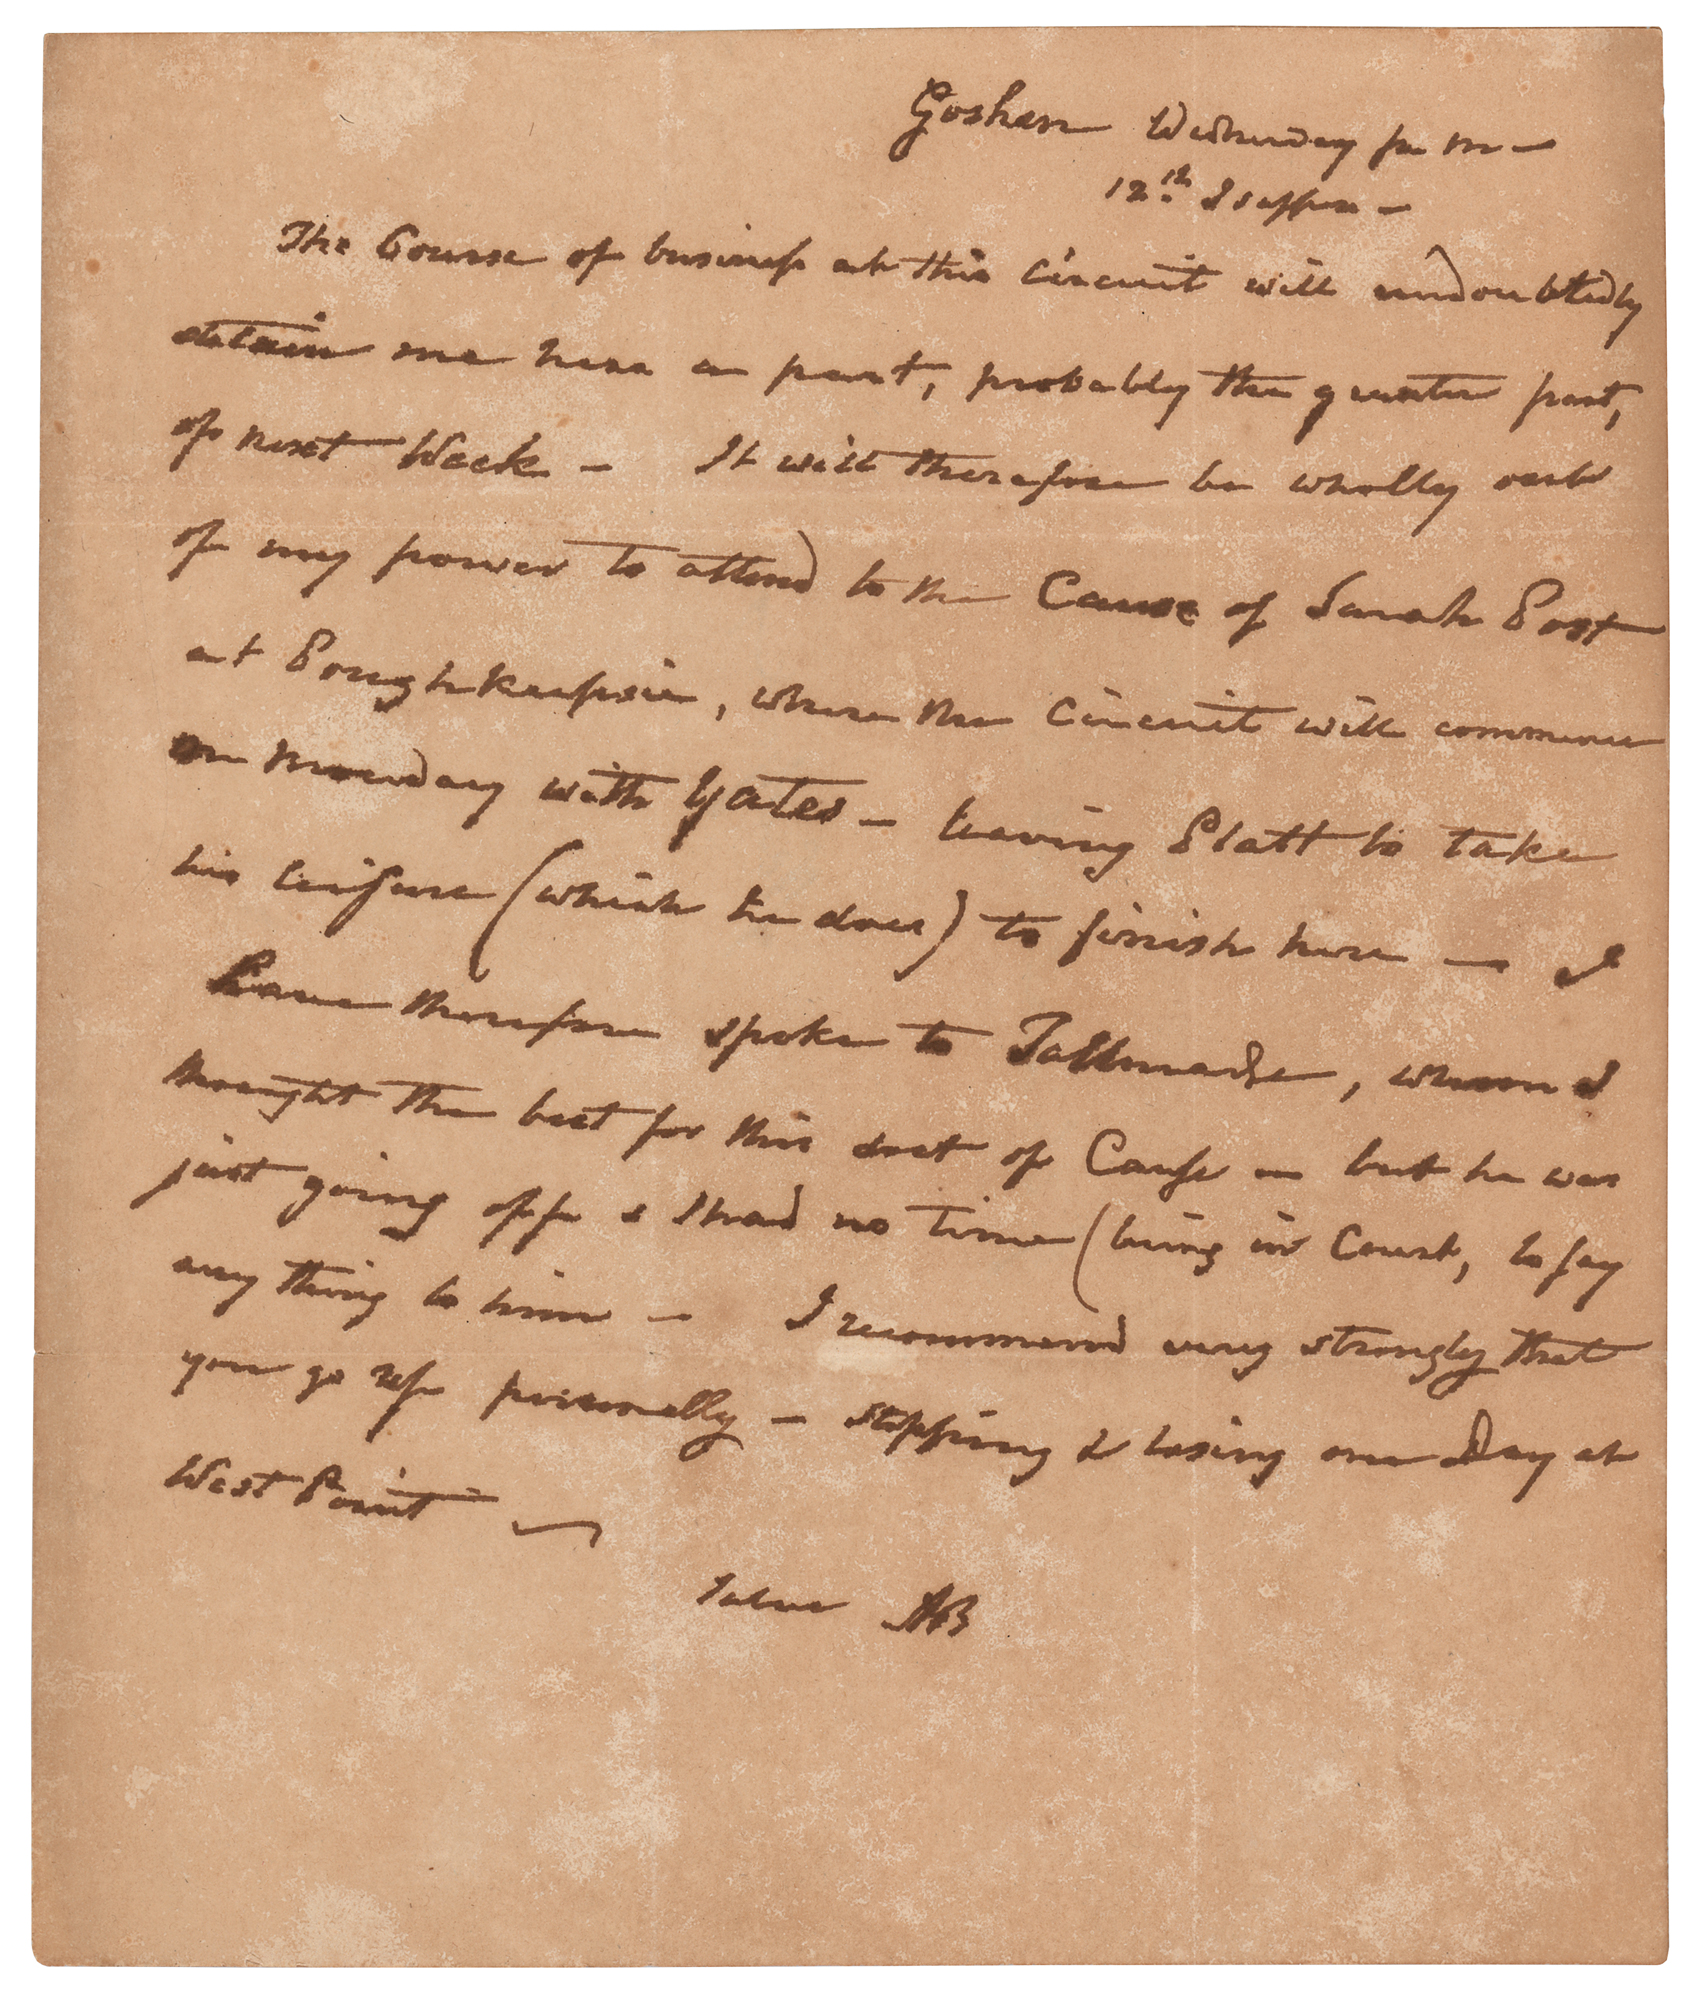 Goshen Wednesday p m —
12th
The Course of business at this circuit will undoubtedly
detain me here a part, probably the greater part,
of next Week — It will therefore be wholly out
of my power to attend to the Cause of Sarah Post
at Poughkeepsie, where the Circuit will commence
on Monday with Yates — leaving Platt to take
his leisure (which he does) to finish here — I
have therefore spoke to Tallmadge, whom I
thought the best for this sort of Cause — but he was
just going off & I had no time (being in Court, to say
any thing to him — I recommend very strongly that
you go up personally — stopping & losing one Day at
West Point —
AB